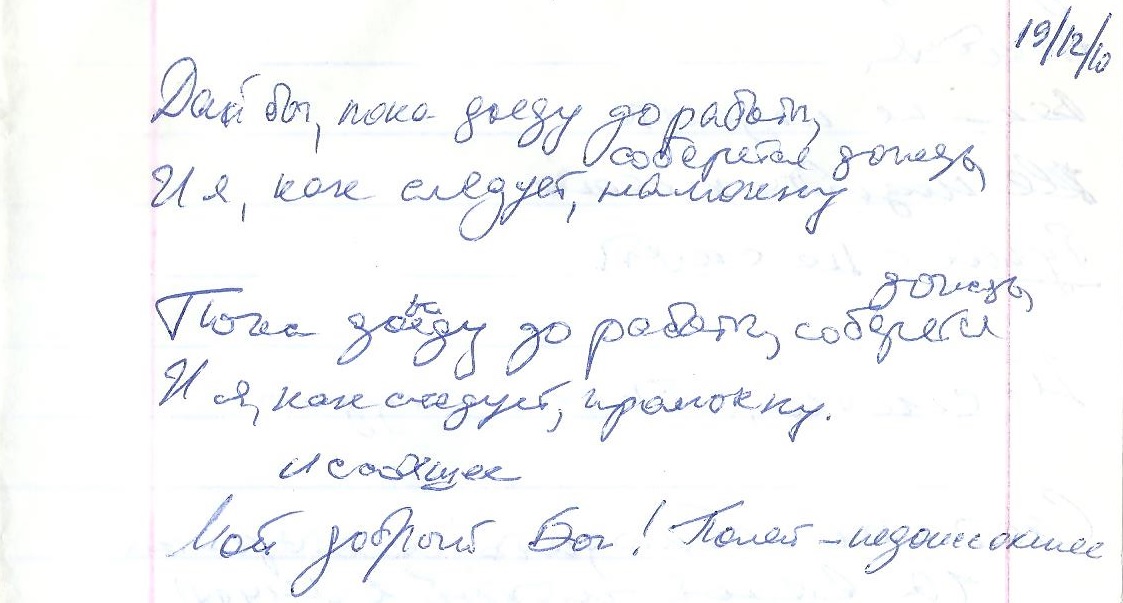 19/12/10
Дай бы, пока доеду до работы,
соберется дождь,
И я, как следует, намокну
дождь,
Пока доеду до работы, соберется
И я, как следует, промокну.
и
Мой добрый Бог! Полей –